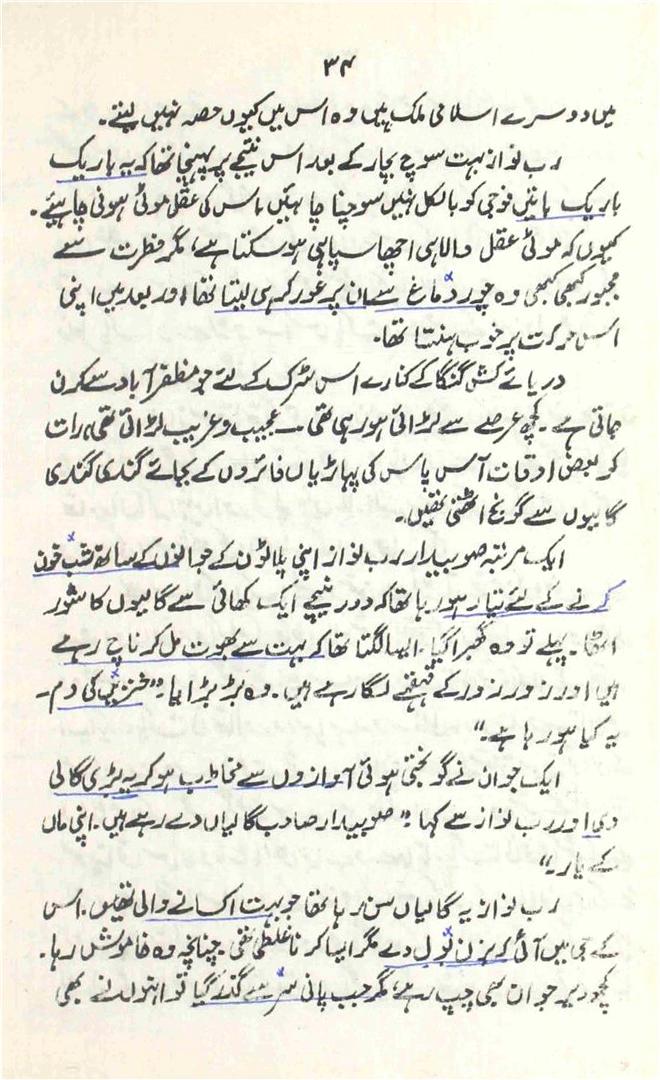 ۳۴
میں دوسرے اسلامی ملک ہیں وہ اس میں کیوں حصہ نہیں لیتے۔
رب نواز بہت سوچ بچار کے بعد اس نتیجے پر پہنچا تھا کہ یہ باریک
باریک باتیں فوجی کو بالکل نہیں سوچنا چاہئیں، اس کی عقل موٹی ہونی چاہیئے۔
کیوں کہ موٹی عقل والا ہی اچھا سپاہی ہو سکتا ہے، مگر فطرت سے
مجبور کبھی کبھی وہ چور دماغ سے ان پر غور کر ہی لیتا تھا اور بعد میں اپنی
اس حرکت پر خوب ہنستا تھا۔
دریائے کشن گنگا کے کنارے اس سڑک کے لئے جو مظفر آباد سے کرن
جاتی ہے۔ کچھ عرصے سے لڑائی ہو رہی تھی۔ عجیب و غریب لڑائی تھی، رات
کو بعض اوقات آس پاس کی پہاڑیاں فائروں کے بجائے گندی گندی
گالیوں سے گونج اٹھتی تھیں۔
ایک مرتبہ صوبیدار رب نواز اپنی پلاٹون کے جوانوں کے ساتھ شب خون
کرنے کے لئے تیار ہو رہا تھا کہ دور نیچے ایک کھائی سے گالیوں کا شور
اٹھا۔ پہلے تو وہ گھبرا گیا۔ ایسا لگتا تھا کہ بہت سے بھوت مل کر ناچ رہے
ہیں اور زور زور کے قہقہے لگا رہے ہیں۔ وہ بڑبڑایا۔ "خنزیر کی دم۔
یہ کیا ہو رہا ہے۔"
ایک جوان نے گونجتی ہوئی آوازوں سے مخاطب ہو کر یہ بڑی گالی
دی اور رب نواز سے کہا۔ "صوبیدار صاحب گالیاں دے رہے ہیں۔ اپنی ماں
کے یار۔"
رب نواز یہ گالیاں سن رہا تھا جو بہت اکسانے والی تھیں۔ اس
کے جی میں آئی کہ بزن بول دے مگر ایسا کرنا غلطی تھی۔ چنانچہ وہ خاموش رہا۔
کچھ دیر جوان بھی چپ رہے، مگر جب پانی سر سے گذر گیا تو انہوں نے بھی